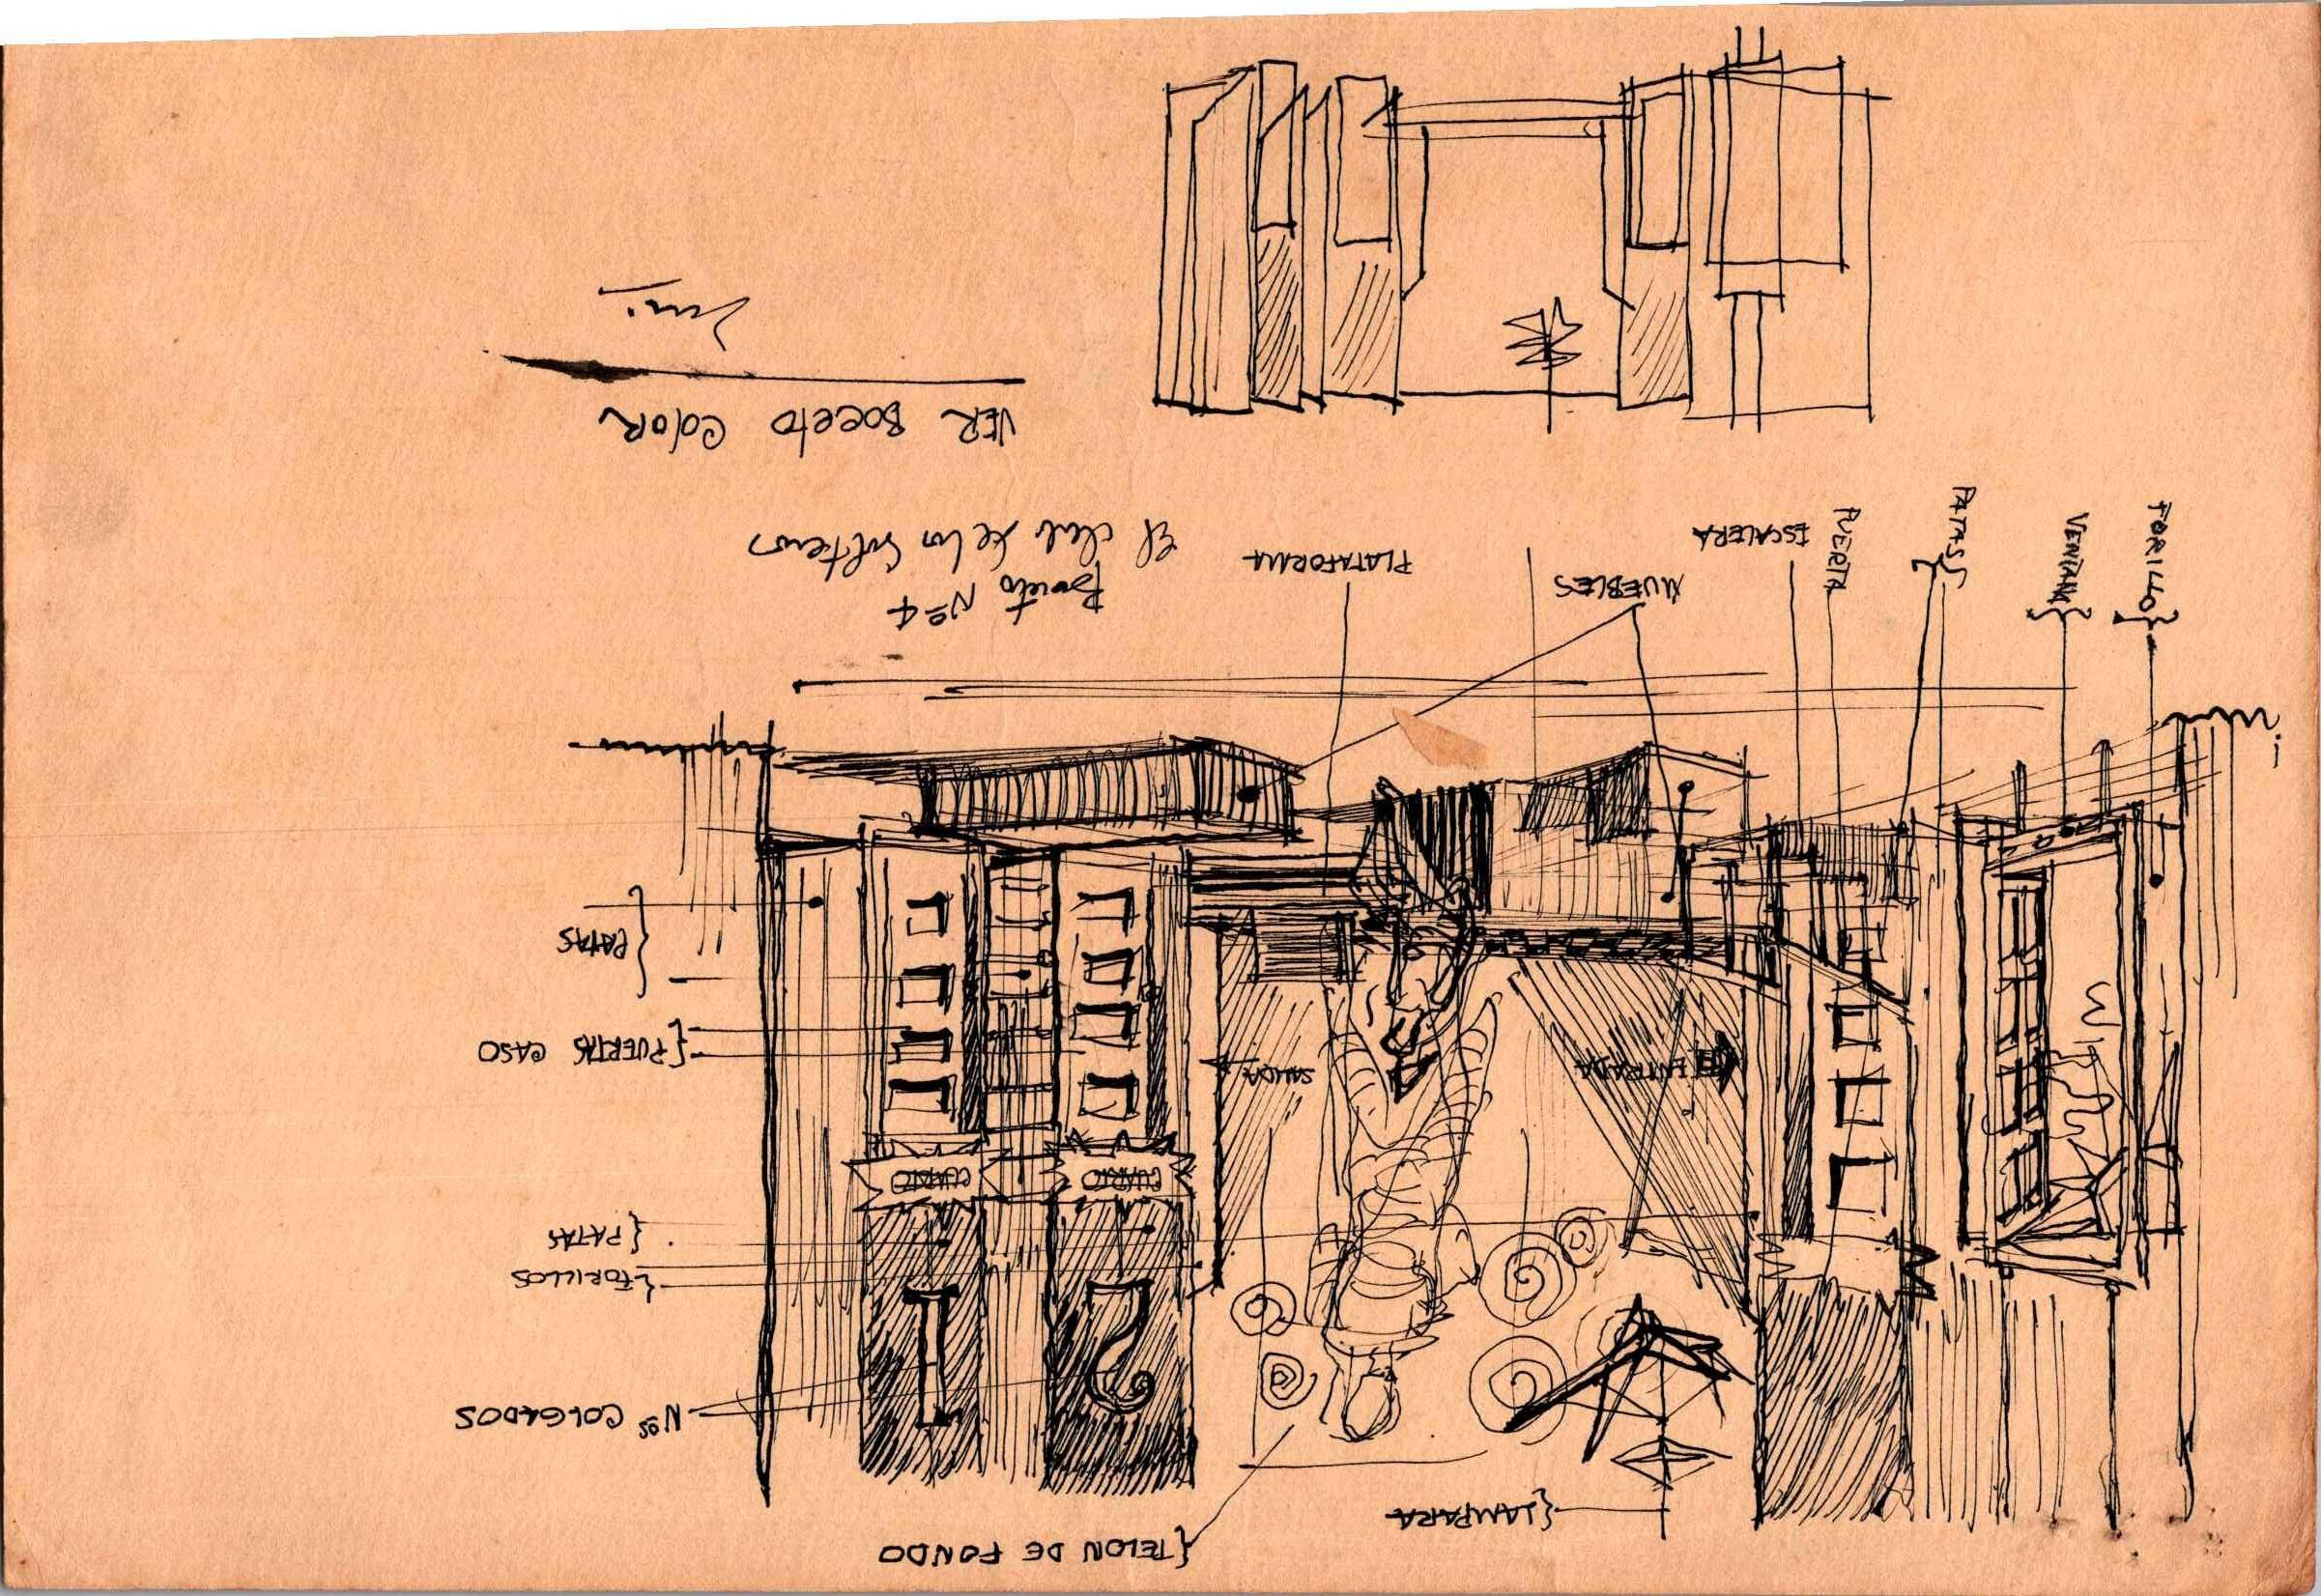 TELON DE FONDO
LAMPARA
Nos COLGADOS
2
1
FORILLOS
PATAS
CUARTO
CUARTO
ENTRADA
SALIDA
PUERTAS CASO
PATAS
FORILLO
VENTANA
PATAS
PUERTA
ESCALERA
MUEBLES
PLATAFORMA
Boceto Nº 4
El club de los Solteros
VER BOCETO COLOR